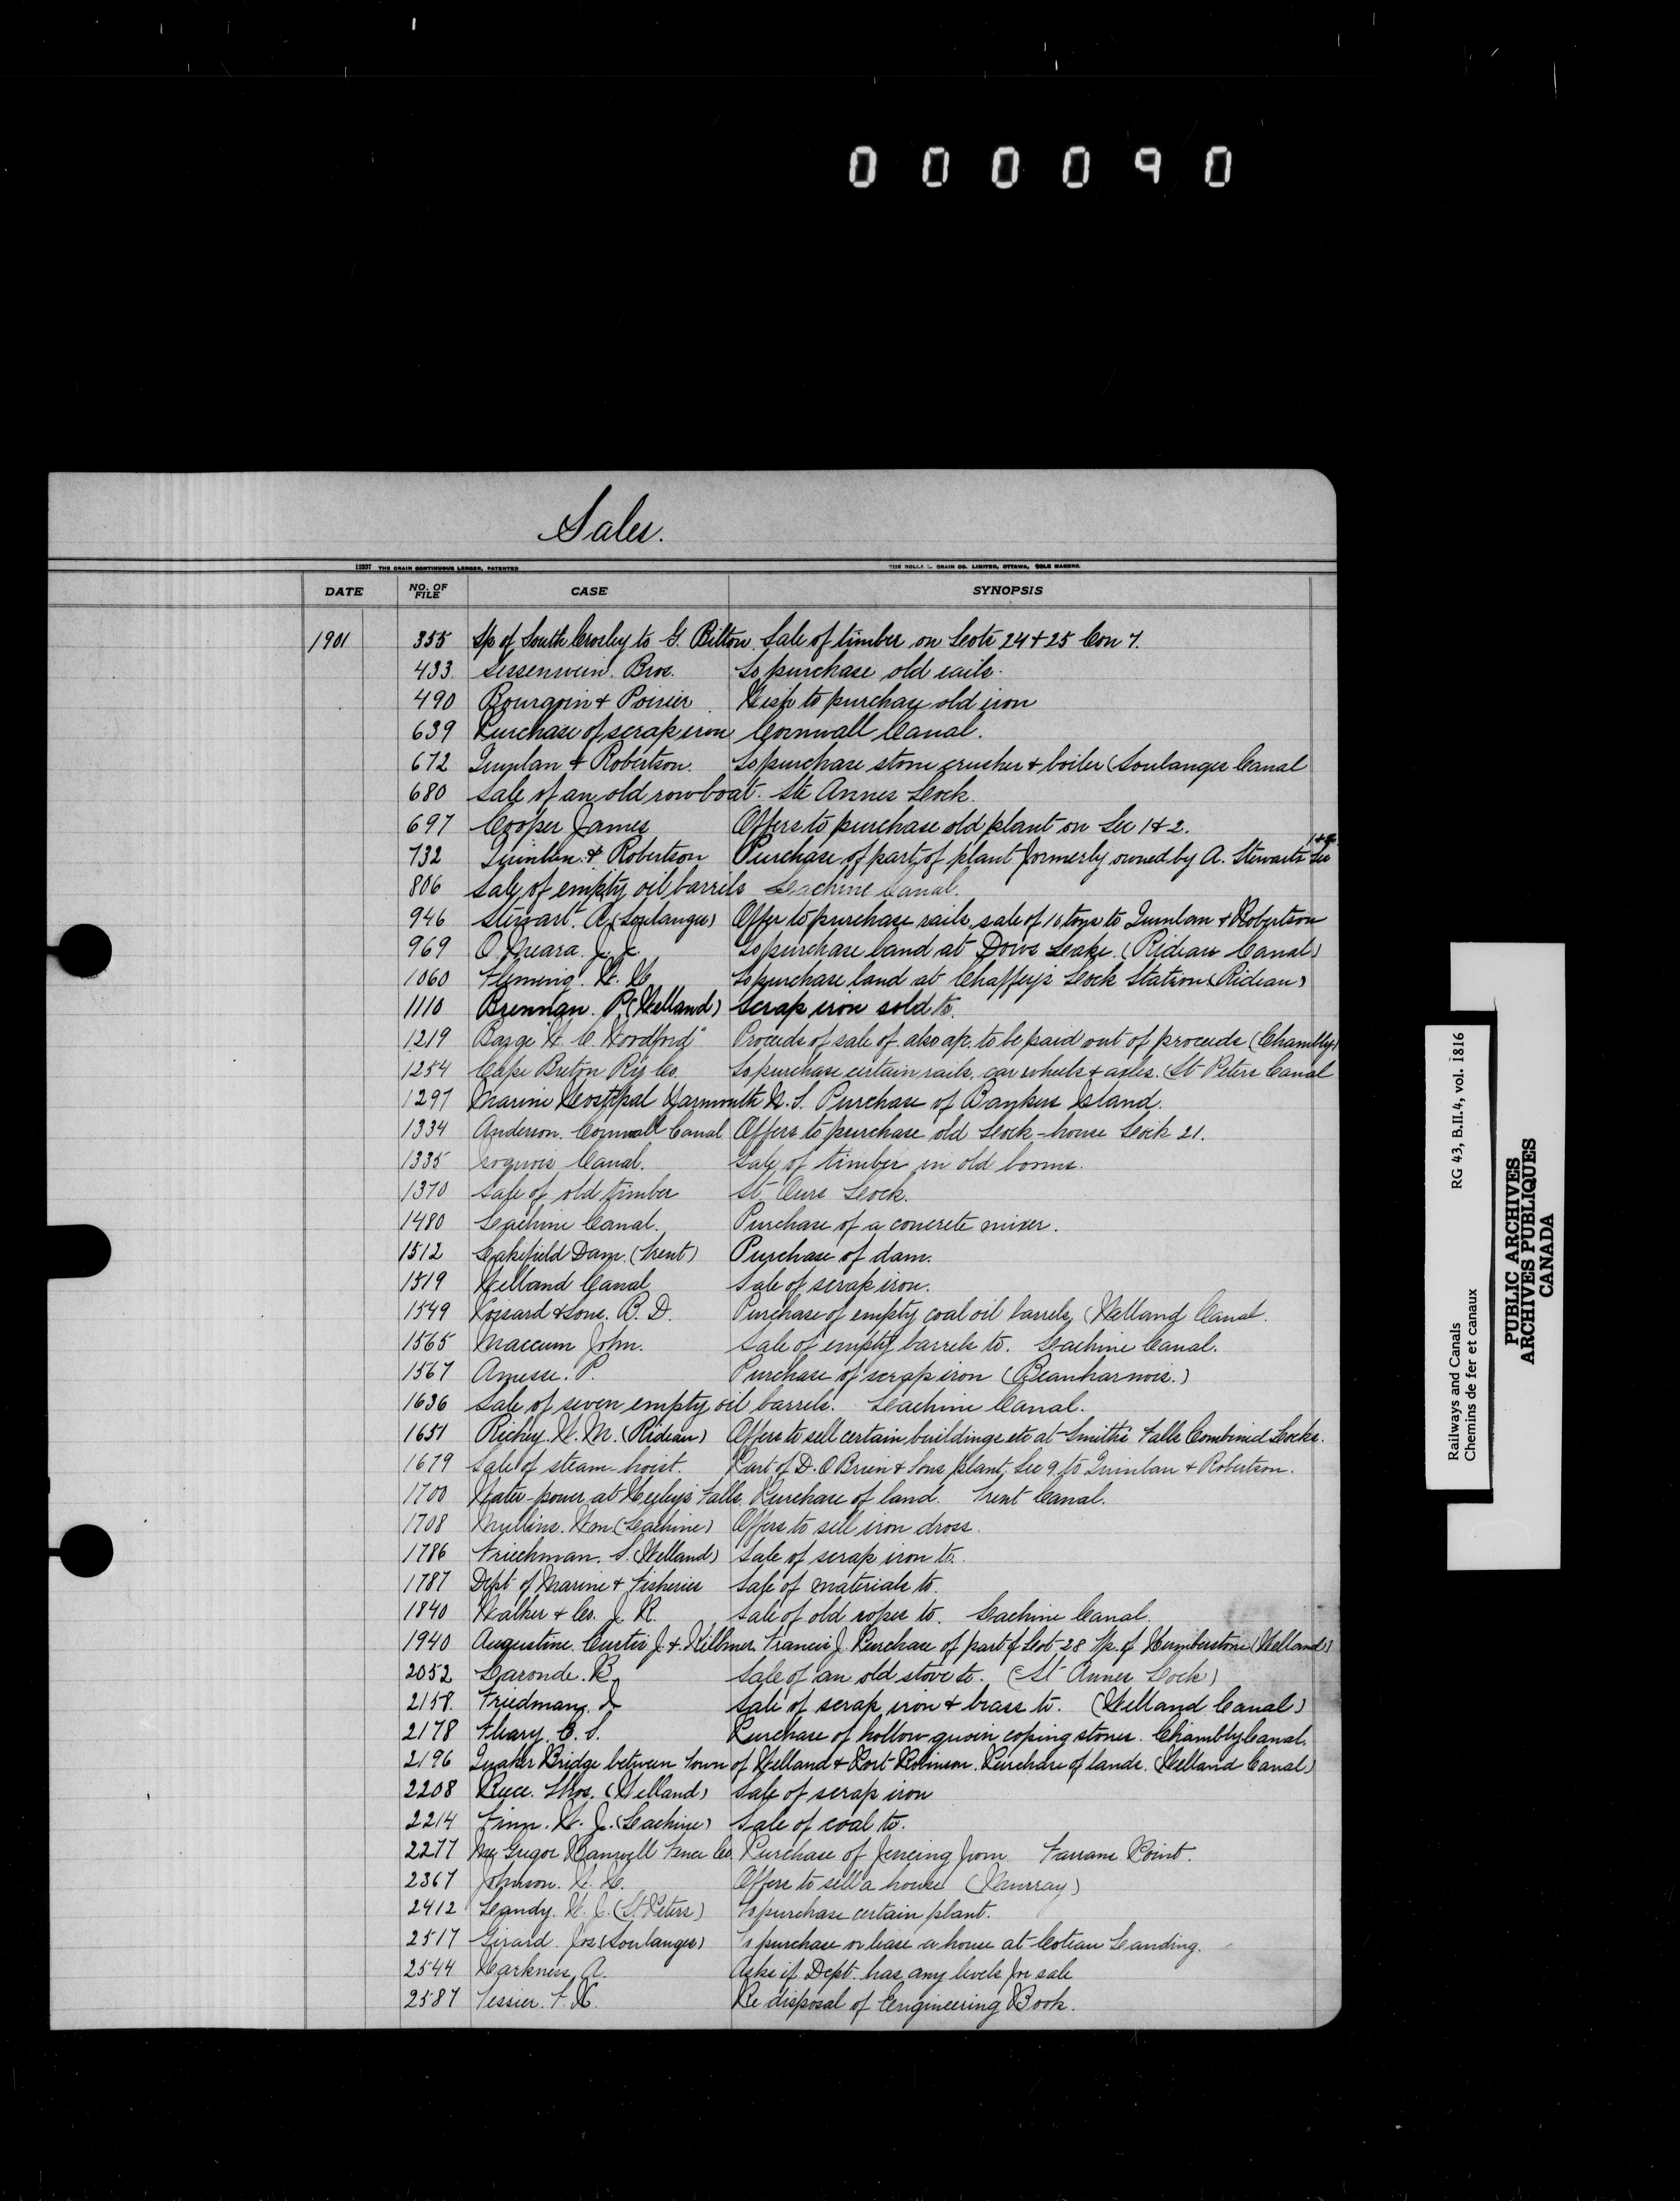 000090
Sales.
12337 THE CRAIN CONTINUOUS LEDGER, PATENTED THE ROLLA L. CRAIN CO. LIMITED, OTTAWA, SOLE MAKERS
DATE NO. OF FILE CASE SYNOPSIS
1901 355 Tp of South Crosby to G. Bilton Sale of timber on Lots 24 & 25 Con 7.
433 Sessenwein Bros. To purchase old rails.
490 Bourgoin & Poirier Wish to purchase old iron
639 Purchase of scrap iron Cornwall Canal.
672 Quinlan & Robertson. To purchase stone crusher & boiler (Soulanges Canal
680 Sale of an old row-boat. Ste Annes Lock.
697 Cooper James Offers to purchase old plant on Sec 1 & 2.
732 Quinlan & Robertson Purchase of part of plant formerly owned by A. Stewarts Sec
806 Sale of empty oil barrels Lachine Canal.
946 Stewart. A. (Soulanges) Offer to purchase rails, sale of 18 tons to Quinlan & Robertson
969 O'Meara. J. To purchase land at Dows Lake. (Rideau Canal)
1060 Fleming. To purchase land at Chaffey's Lock Station (Rideau)
1110 Brennan. P. (Welland) Scrap iron sold to.
1219 Barge "W. C. Woodford" Proceeds of sale of also a/c. to be paid out of proceeds (Chambly)
1254 Cape Breton Ry Co. To purchase certain rails, car wheels & axles. (St Peters Canal
1297 Marine Hospital Yarmouth N.S. Purchase of Bankers Island.
1334 Anderson. Cornwall Canal Offers to purchase old Lock-house Lock 21.
1335 Iroquois Canal. Sale of timber in old booms.
1370 Sale of old timber St. Ours Lock.
1480 Lachine Canal. Purchase of a concrete mixer.
1512 Lakefield Dam. (Trent) Purchase of dam.
1519 Welland Canal Sale of scrap iron.
1549 & Sons. R. D. Purchase of empty coal oil barrels, (Welland Canal.
1565 Maccum John. Sale of empty barrels to. Lachine Canal.
1567 Amesse. P. Purchase of scrap iron (Beauharnois.)
1636 Sale of seven empty oil barrels. Lachine Canal.
1651 Richey. W. M. (Rideau) Offers to sell certain buildings etc at Smith's Falls Combined Locks.
1679 Sale of steam-hoist. Part of D. O'Brien & Sons plant, Sec 9 to Quinlan & Robertson.
1700 Water-power at Healey's Falls. Purchase of land. Trent Canal.
1708 Mullins. Wm (Lachine) Offers to sell iron dross.
1786 Friechman. S. (Welland) Sale of scrap iron to.
1787 Dept of Marine & Fisheries Sale of materials to.
1840 Walker & Co. J. R. Sale of old ropes to. Lachine Canal.
1940 Augustine Curtis J. & Killmer Francis J. Purchase of part of Lot 28 Tp. of Humberstone (Welland)
2052 Laronde. B. Sale of an old stove to. (St Annes Lock)
2158. Friedman. Sale of scrap iron & brass to. (Welland Canal)
2178 Fleary. C. S. Purchase of hollow-quoin coping stones. Chambly Canal.
2196 Quaker Bridge between Town of Welland & Port Robinson. Purchase of lands. (Welland Canal)
2208 Rice. Thos. (Welland) Sale of scrap iron
2214 Finn. W. J. (Lachine) Sale of coal to.
2277 McGregor Banwell Fence Co. Purchase of fencing from Farrans Point.
2367 Johnson. Offers to sell a house (Murray)
2412 Landy. W. J. (St Peters) To purchase certain plant.
2517 Girard. Jos (Soulanges) To purchase or lease a house at Coteau Landing.
2544 Harkness, A. Asks if Dept. has any levels for sale
2587 Tessier. F. X. Re disposal of Engineering Book.
Railways and Canals RG 43, B.II.4, vol. 1816
Chemins de fer et canaux
PUBLIC ARCHIVES
ARCHIVES PUBLIQUES
CANADA